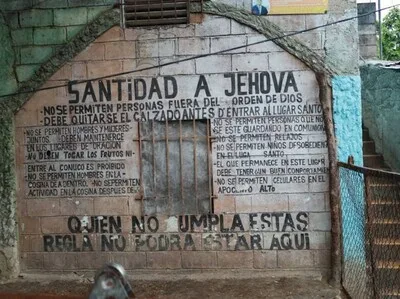 SANTIDAD A JEHOVA
-NO SE PERMITEN PERSONAS FUERA DEL ORDEN DE DIOS
-DEBE QUITARSE EL CALZADO ANTES D'ENTRAR AL LUGAR SANTO
-NO SE PERMITEN HOMBRES Y MUJERES
JUNTOS DEBEN MANTENERCE
EN LOS LUGARES DE ORACION
NO DEBEN TOCAR LOS FRUTOS NI
ENTRE AL CONUCO ES PROIBIDO
-NO SE PERMITEN HOMBRES EN LA
COSINA DE ADENTRO. -NO SE PERMITEN
ACTIVIDAD EN LA COSINA DESPUES DE
SE ESTE GUARDANDO EN COMUNION
-NO SE PERMITEN RELAJOS
-NO SE PERMITEN NIÑOS D'SOBEREDIENTE
EN EL LUGA SANTO
-EL QUE PERMANECE EN ESTE LUGAR
DEBE TENER UN BUEN
-NO SE PERMITEN CELULARES EN EL
ALTO
QUIEN NO CUMPLA ESTAS
REGLA NO PODRA ESTAR AQUI